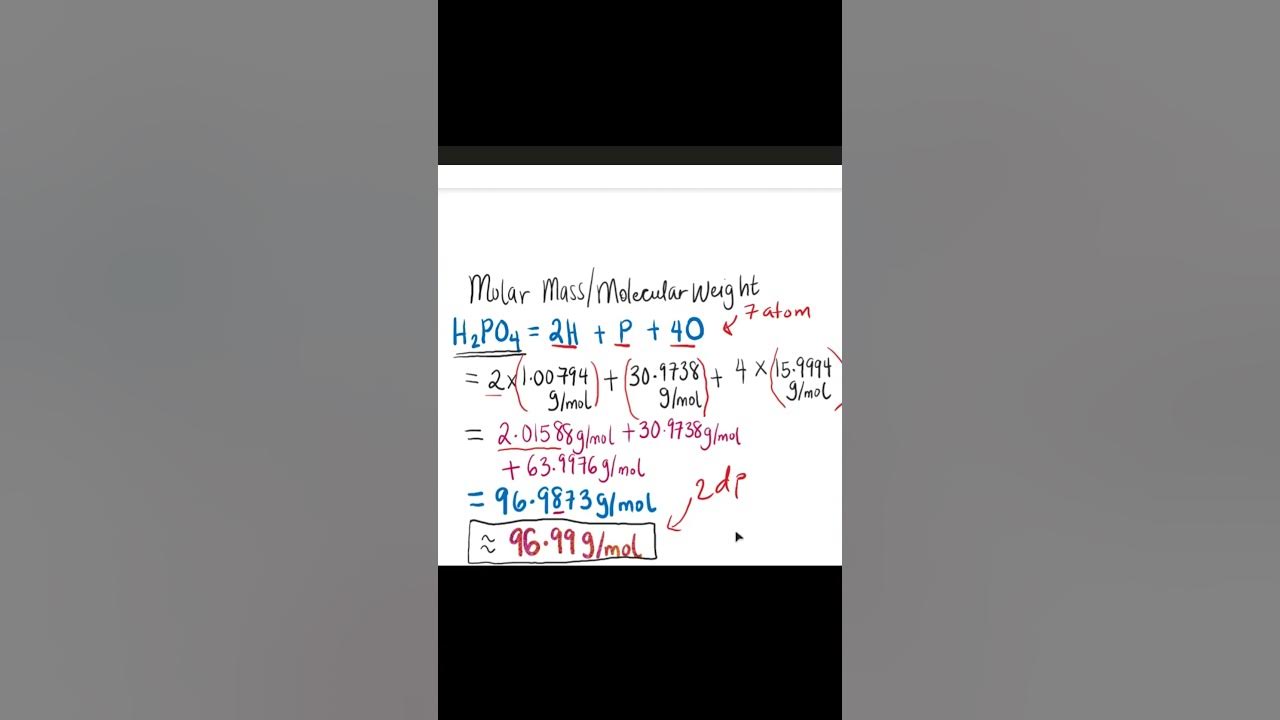 Molar Mass/Molecular Weight
H₂PO₄ = 2H + P + 4O
7 atom
= 2×(1.00794 g/mol) + (30.9738 g/mol) + 4 × (15.9994 g/mol)
= 2.01588g/mol + 30.9738g/mol
+ 63.9976g/mol
= 96.9873g/mol
2dp
≈ 96.99g/mol